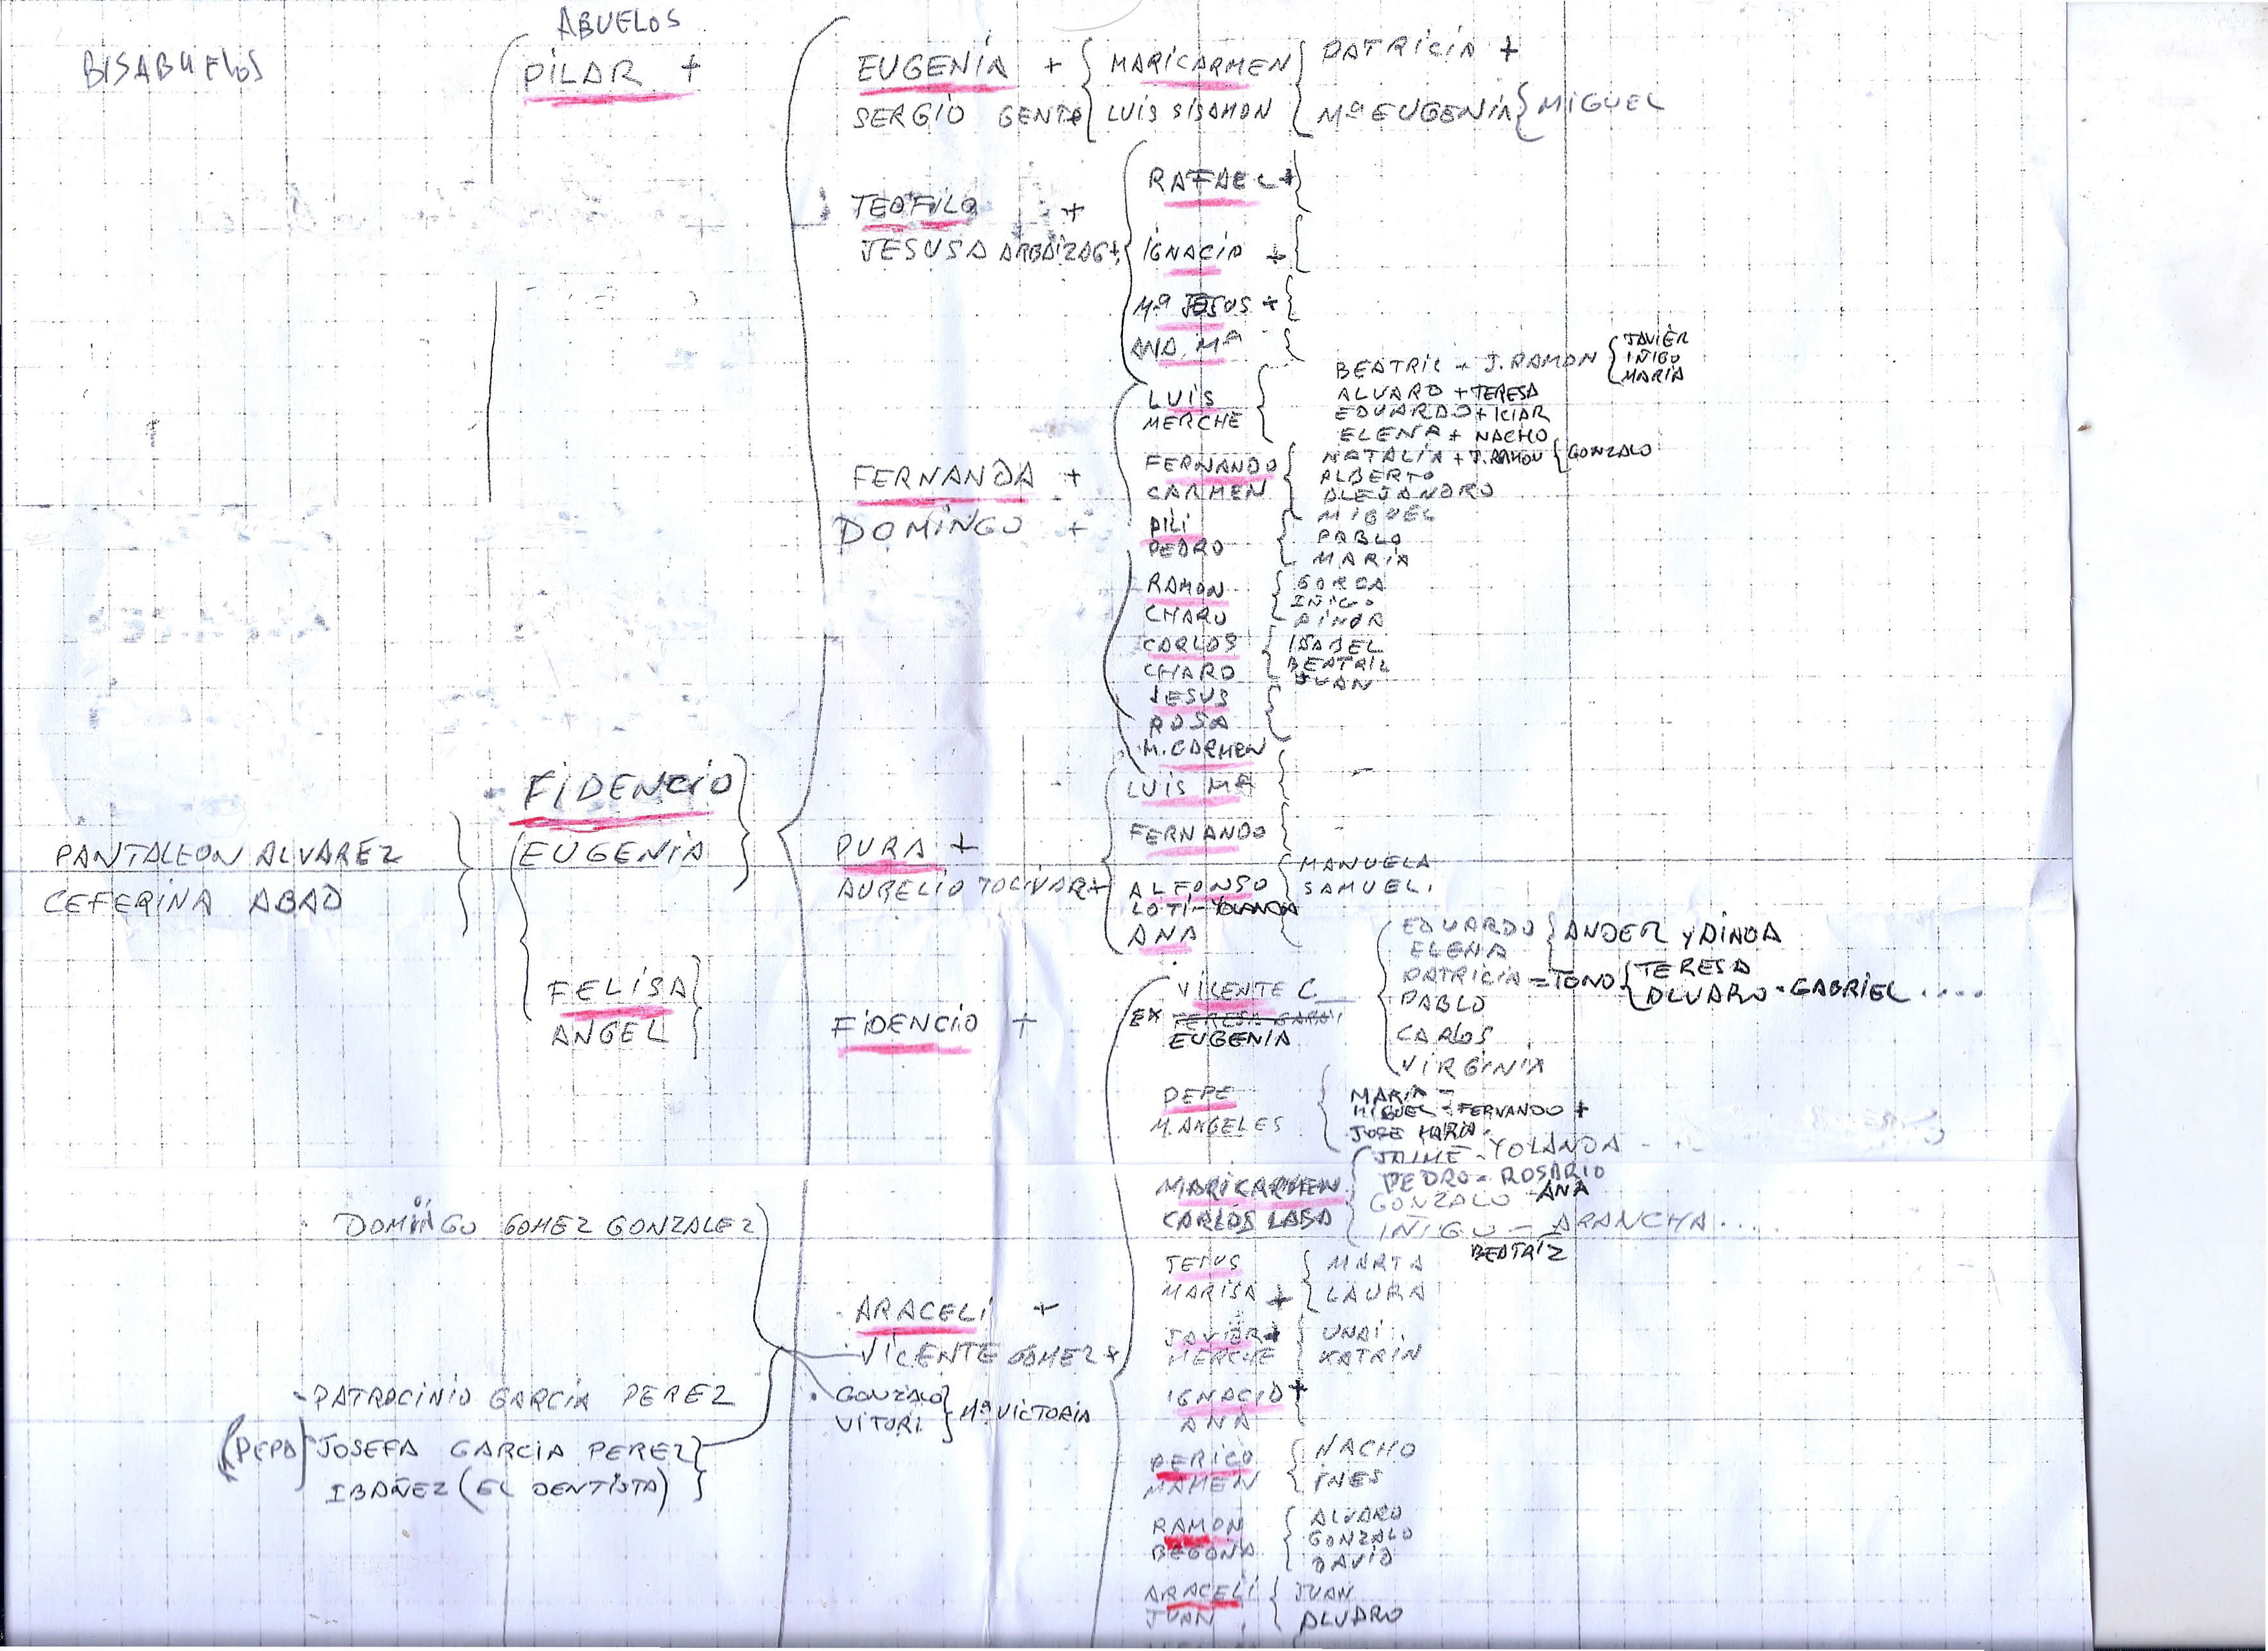 BISABUELOS
ABUELOS
PILAR +
EUGENIA +
SERGIO GENTO
MARICARMEN
LUIS SISAMON
PATRICIA +
Mª EUGENIA { MIGUEL
TEOFILO +
JESUSA ARBAIZAG+
RAFAEL +
IGNACIO +
Mª JESUS +
ANA Mª
FERNANDA +
DOMINGO +
LUIS
MERCHE
BEATRIZ - J. RAMON
JAVIER
IÑIGO
MARIA
ALVARO + TERESA
EDUARDO + ICIAR
ELENA + NACHO
FERNANDO
CARMEN
NATALIA + J. RAMON { GONZALO
ALBERTO
ALEJANDRO
PILI
PEDRO
MIGUEL
PABLO
MARIA
RAMON
CHARO
GORCA
IÑIGO
AINOA
CARLOS
CHARO
ISABEL
BEATRIZ
JUAN
JESUS
ROSA
M. CARMEN
PANTALEON ALVAREZ
CEFERINA ABAD
FIDENCIO
EUGENIA
FELISA
ANGEL
PURA +
AURELIO TOLIVAR +
LUIS Mª
FERNANDO
ALFONSO
LOTI - YOLANDA
MANUELA
SAMUEL.
ANA
FIDENCIO +
VICENTE C.
EX TERESA
EUGENIA
EDUARDO
ELENA
ANDER Y AINOA
PATRICIA = TONO
TERESA
ALVARO - GABRIEL ....
PABLO
CARLOS
VIRGINIA
PEPE
M. ANGELES
MARIA -
MIGUEL - FERNANDO +
JOSE MARIA -
MARICARMEN
CARLOS LASA
JAIME - YOLANDA -
PEDRO - ROSARIO
GONZALO - ANA
IÑIGO - ARANCHA ....
BEATRIZ
DOMINGO GOMEZ GONZALEZ
ARACELI +
VICENTE GOMEZ +
JESUS
MARISA +
MARTA
LAURA
JAVIER +
MERCHE
UNAI
KATRIN
- PATROCINIO GARCIA PEREZ
(PEPA) JOSEFA GARCIA PEREZ
IBAÑEZ (EL DENTISTA)
GONZALO
VITORI
Mª VICTORIA
IGNACIO +
ANA
PERICO
MAMEN
NACHO
INES
RAMON
BEGOÑA
ALVARO
GONZALO
DAVID
ARACELI
JUAN
JUAN
ALVARO